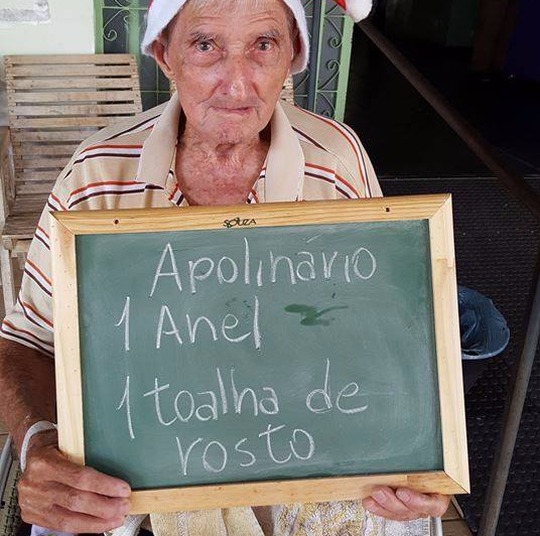 SOUZA
Apolinário
1 Anel
1 toalha de
rosto